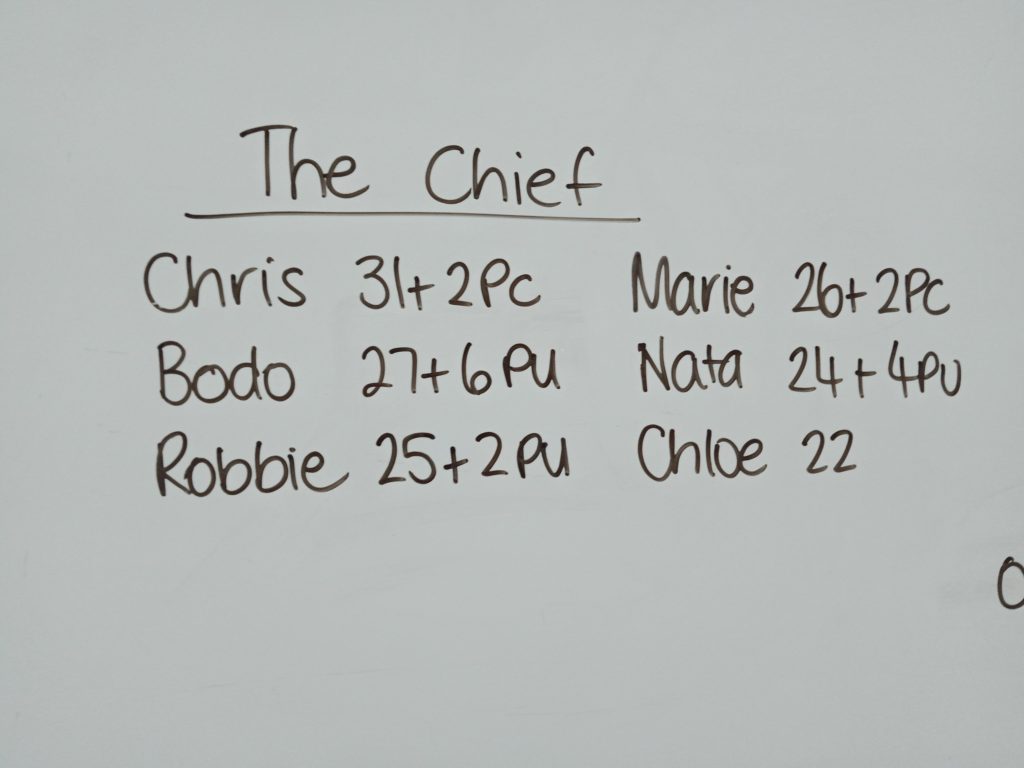 The Chief
Chris 31+2PC Marie 26+2PC
Bodo 27+6PU Nata 24+4PU
Robbie 25+2PU Chloe 22